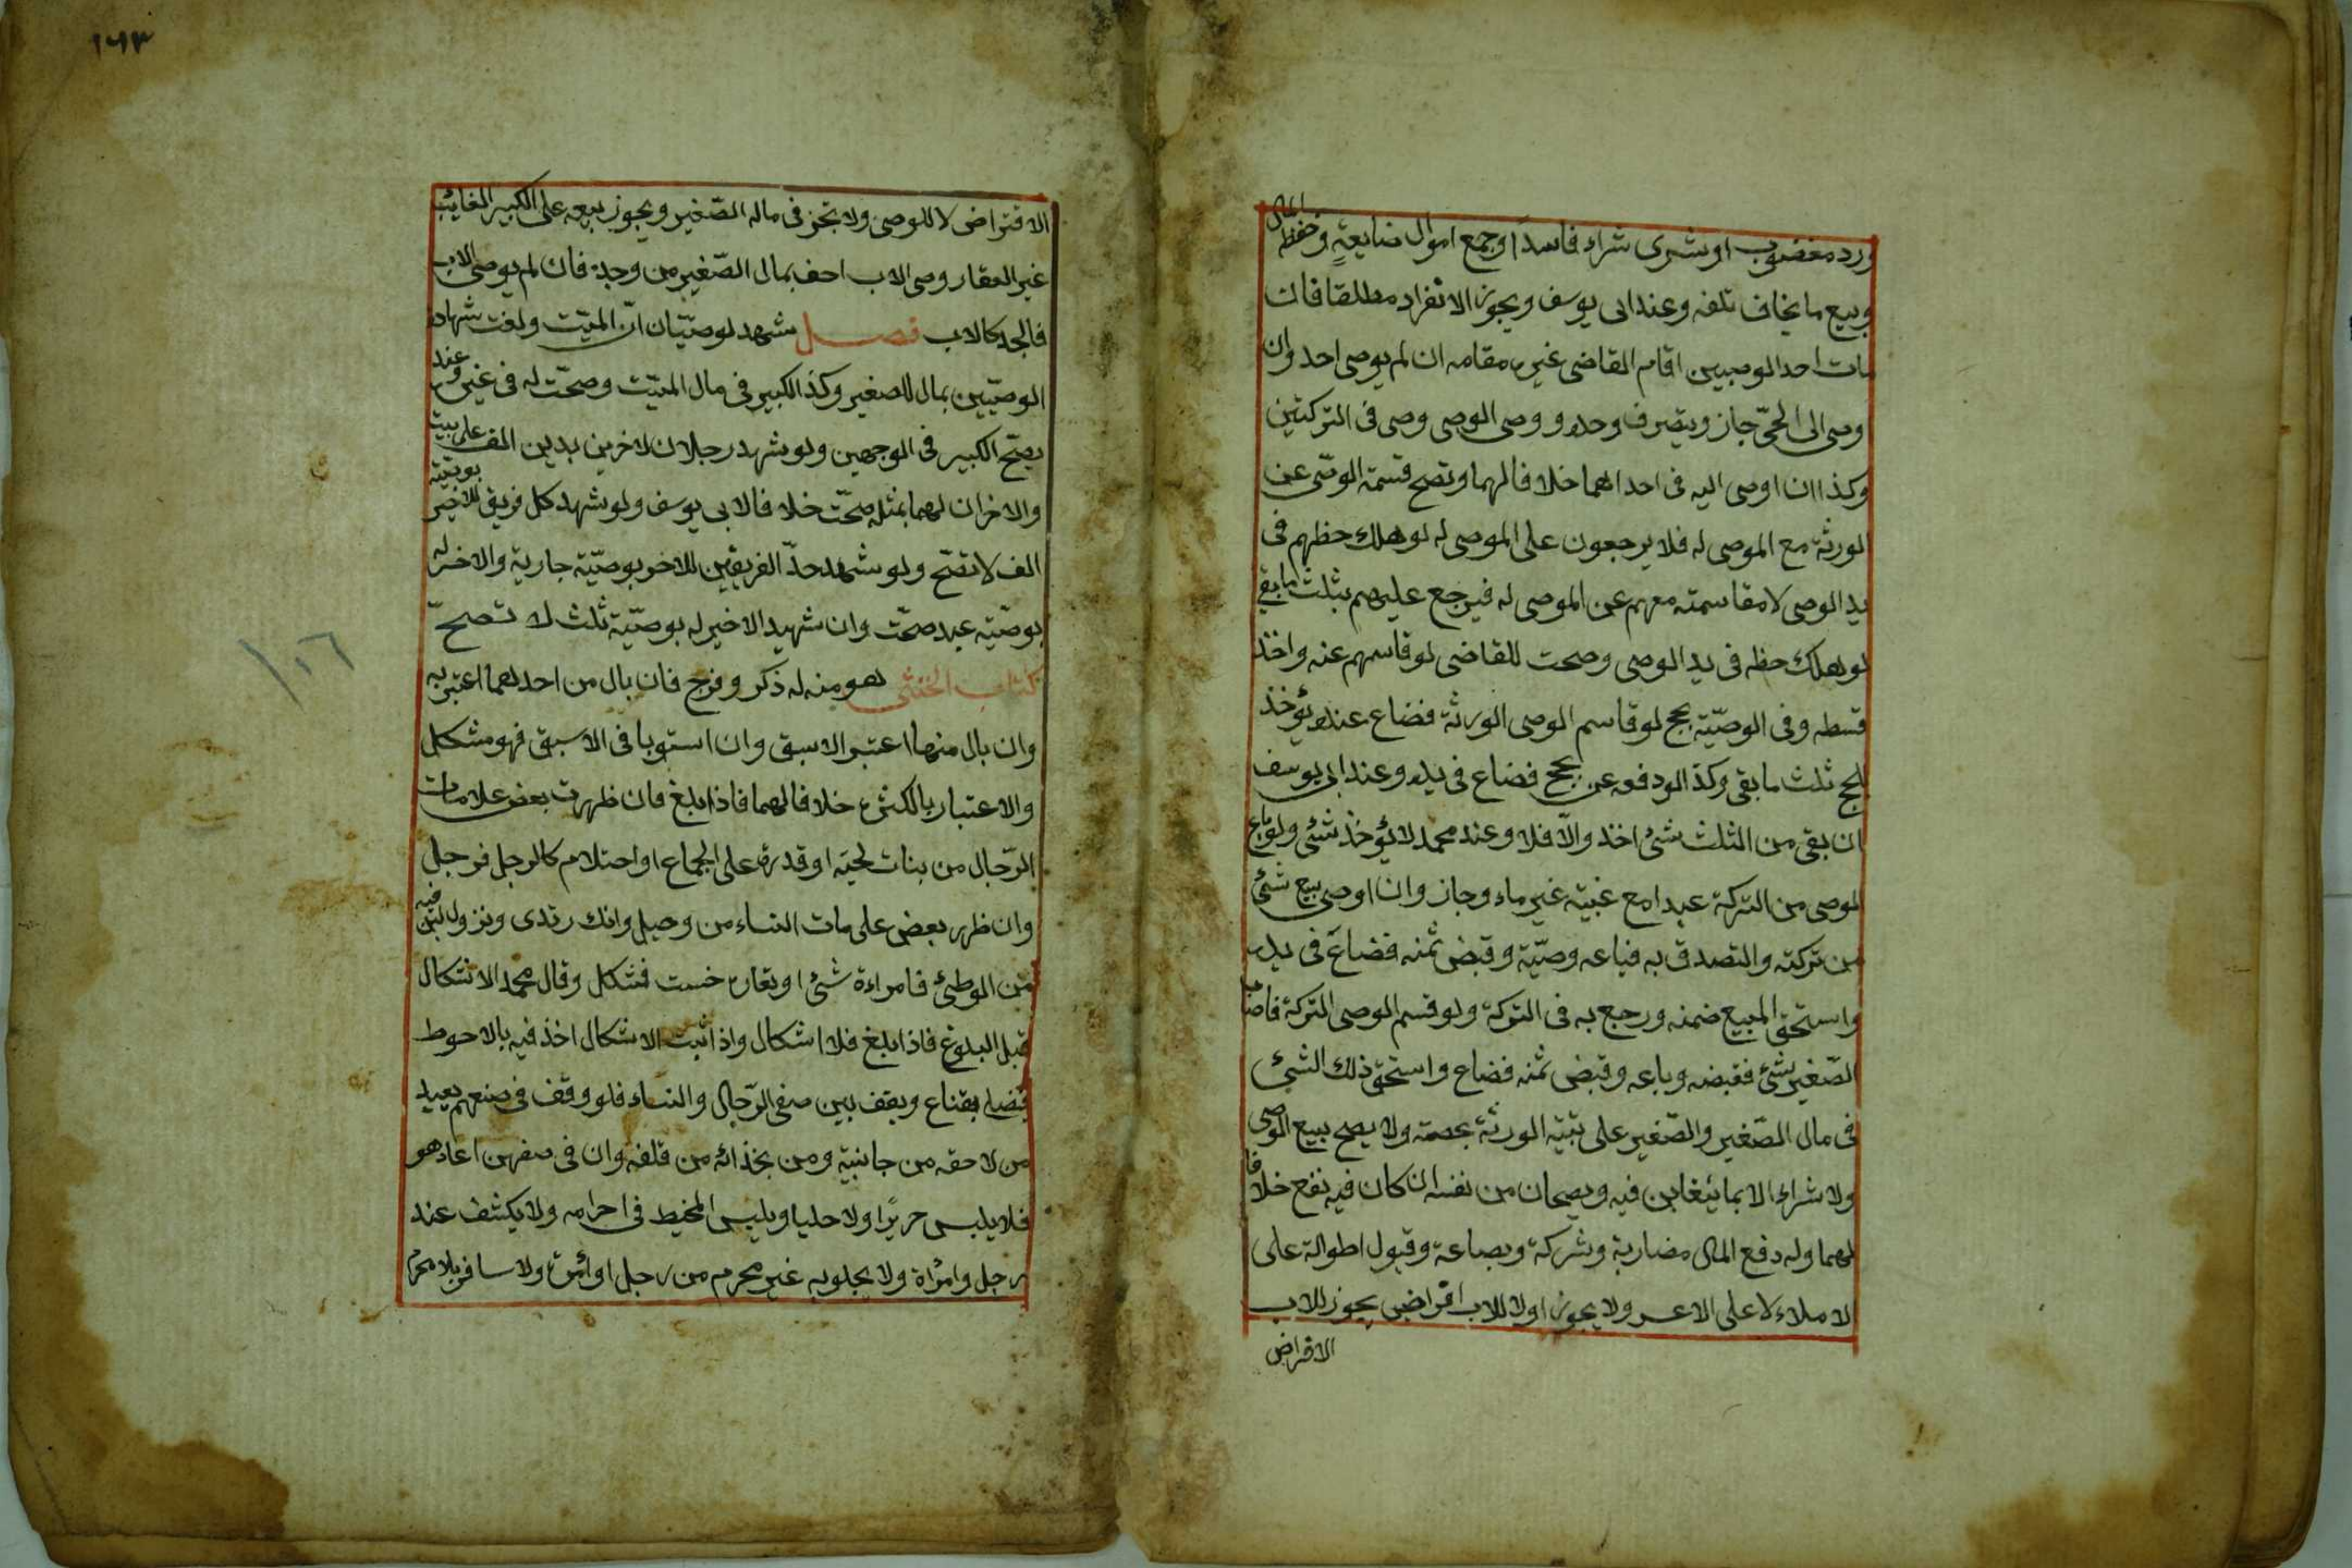 ورد مغضوب او شرى شراء فاسداً وجمع اموال ضايعةٍ وحفظ المال
وبيع ما يخاف تلفه وعند ابى يوسف ويجوز الانفراد مطلقا فان
مات احد الوصيين اقام القاضى غيره مقامه ان لم يوصى احد وان
وصى الى الحىّ جاز ويتصرف وحده ووصى الوصى وصى فى التركتين
وكذا ان اوصى اليه فى احداهما خلافا لهما وتصح قسمة الوصّى عن
لورثة مع الموصى له فلا يرجعون على الموصى له لو هلك حظهم فى
يد الوصى لا مقاسمته معهم عن الموصى له فيرجع عليهم بثلث ما بقى
لو هلك حظه فى يد الوصى وصحت للقاضى لو قاسمهم عنه واخذ
قسطه وفى الوصيّة بحج لو قاسم الوصى الورثة فضاع عنده يؤخذ
للحج ثلث ما بقى وكذا لو دفعه عن بحج فضاع فى يده وعند ابى يوسف
ان بقى من الثلث شئ اخذ والاّ فلا وعند محمد لا يؤخذ شئى ولو باع
لوصى من التركة عبدا مع غيبة غير ماء وجاز وان اوصى ببيع شئ
من تركته والتصدق به فباعه وصيّة وقبض ثمنه فضاع فى يده
واستحق المبيع ضمنه ورجع به فى التركة ولو قسم الوصى التركة فاصاب
الصّغير شئ فقبضه وباعه وقبض ثمنه فضاع واستحق ذلك الشئ
فى مال الصّغير والصّغير على بقيّة الورثة بحصته ولا يصح بيع الوصى
ولا شراءه الا بما يتغابن فيه ويصحان من نفسه ان كان فيه نفع خلافا
لهما وله دفع المال مضاربة وشركة وبضاعة وقبول اطوالة على
لاملاء لا على الاعسر ولا يجوز اولا للاب اقراض يجوز للاب
الاقراض
١٦٣
الاقتراض لا للوصى ولا يتجز فى ماله الصّغير ويجوز بيعه على الكبير الغايب
غير العقار وصى الاب احف بمال الصّغير من وجدّ فان لم يوصى الاب
فالجد كالاب فصل شهد لوصيّيان انّ الميّت ولغت شهادة
الوصيّين بمال للصغير وكذ الكبير فى مال الميّت وصحّت له فى غيره وعند
يصّح الكبير فى الوجهين ولو شهد رجلان لاخرين بدين الف على ميت
والاخران لهما بمثله صحّت خلافا لابى يوسف ولو شهد كل فريق للاخر بوصيّة
الف لا تصّح ولو شهد حدّ الفريقين للاخر بوصيّة جارية والاخر له
بوصيّة عبد صحّت وان شهيد الاخير له بوصيّة ثلث لا تصحّ
كتاب الخنثى هو منه له ذكر وفرج فان بال من احدهما اعتبر به
وان بال منهما اعتبر الاسبق وان استويا فى الاسبق فهو مشكل
والاعتبار بالكثرة خلافا لهما فاذا بلغ فان ظهرت بعض علامات
الرّجال من بنات لحيّه او قدرة على الجماع او احتلام كالرجل فرجل
وان ظهر بعض على مات النساء من وحيل وانك رتدى ونزول لبن فيه
من الوطئ فامراءة شئ او تعارض خست فشكل وقال محمد الا نتكال
قبل البلوغ فاذا بلغ فلا اشكال واذا ثبت الاشكال اخذ فيه بالاحوط
فصلى بقناع ويقف بين صفى الرّجال والنساء فلو وقف فى صنعهم يعيد
من لاحقه من جانبية ومن بحذائه من قلفه وان فى صفهن اعاد هو
فلا يلبس حريرًا ولا حليا ويلبس المخيط فى احرامه ولا يكشف عند
رجل وامرُاة ولا يجلو به غير محرم من رجل او امرة ولا سافر بلا محرم
١٠٦